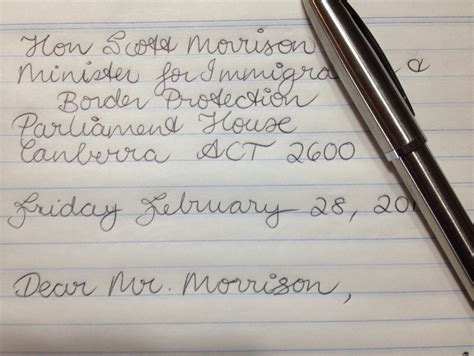 Hon Scott Morrison
Minister for Immigra
Border Protection
Parliament House
Canberra ACT 2600
Friday February 28, 201
Dear Mr. Morrison,